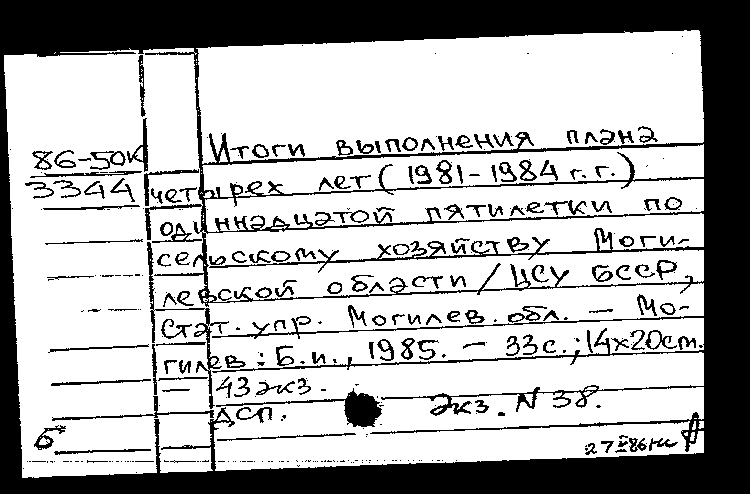 Итоги выполнения плана
86-50К
3344 четырех лет (1981-1984 г.г.)
одиннадцатой пятилетки по
сельскому хозяйству Моги-
левской области / ЦСУ БССР,
Стат. упр. Могилев. обл. — Мо-
гилев : Б.и., 1985. — 33 с.; 14х20 cm.
— 43 экз.
ДСП. Экз. N 38.
Б